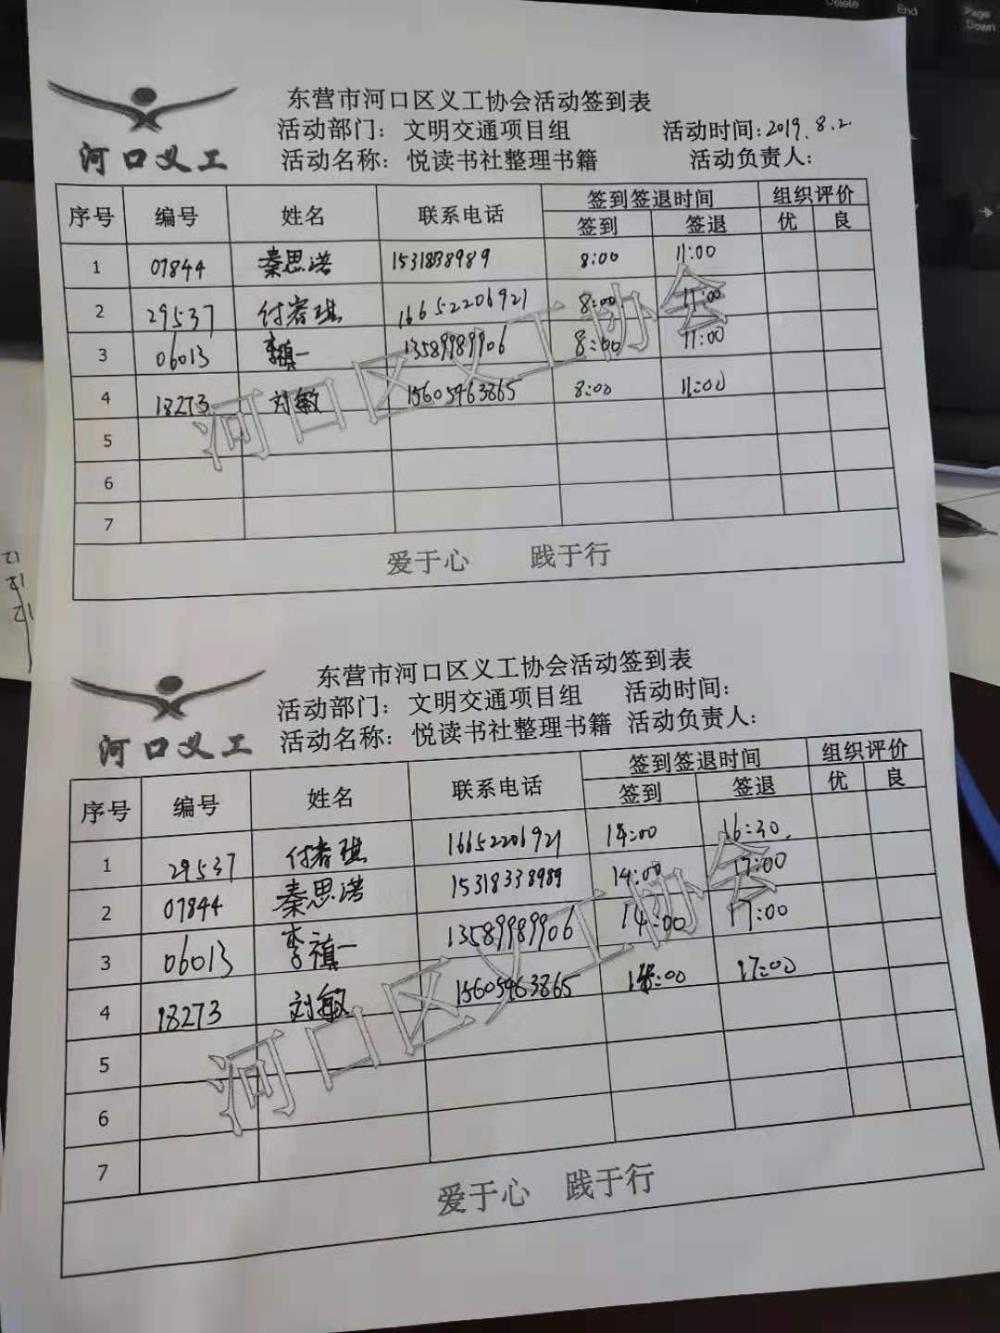 Delete End Page Down
东营市河口区义工协会活动签到表
活动部门: 文明交通项目组 活动时间:2019.8.2.
河口义工 活动名称: 悦读书社整理书籍 活动负责人:
序号 编号 姓名 联系电话 签到签退时间 组织评价
签到 签退 优 良
1 07844 秦思诺 1531838989 8:00 11:00
2 29537 付睿琪 16652206921 8:00 11:00
3 06013 李禛一 13589989906 8:00 11:00
4 18273 刘敏 15605463865 8:00 11:00
5
6
7
河口区义工协会
爱于心 践于行
东营市河口区义工协会活动签到表
活动部门: 文明交通项目组 活动时间:
河口义工 活动名称: 悦读书社整理书籍 活动负责人:
序号 编号 姓名 联系电话 签到签退时间 组织评价
签到 签退 优 良
1 29537 付睿琪 16652206921 14:00 16:30.
2 07844 秦思诺 15318338989 14:00 17:00
3 06013 李禛一 13589989906 14:00 17:00
4 18273 刘敏 15605463865 14:00 17:00
5
6
7
河口区义工协会
爱于心 践于行